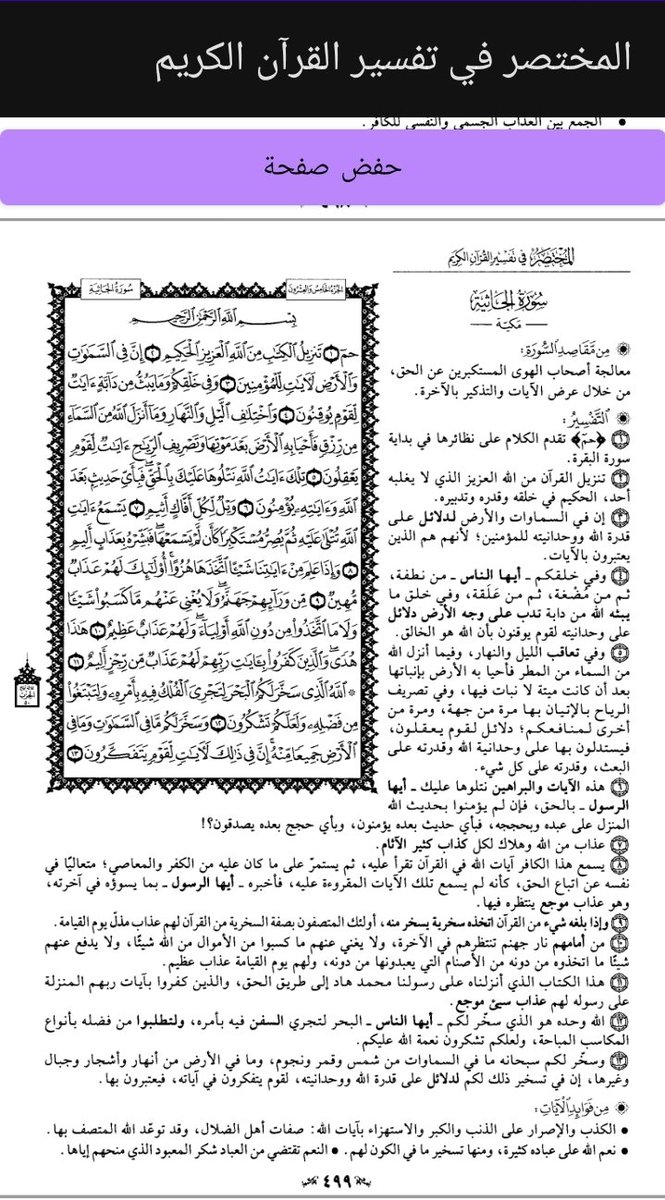 المختصر في تفسير القرآن الكريم
• الجمع بين العذاب الجسمي والنفسي للكافر.
حفض صفحة
٤٩٨
المختصر في تفسير القرآن الكريم
سورة الجاثية
— مكية —
من مقاصد السورة:
معالجة أصحاب الهوى المستكبرين عن الحق،
من خلال عرض الآيات والتذكير بالآخرة.
التفسير:
١ ﴿حمٓ﴾ تقدم الكلام على نظائرها في بداية
سورة البقرة.
٢ تنزيل القرآن من الله العزيز الذي لا يغلبه
أحد، الحكيم في خلقه وقدره وتدبيره.
٣ إن في السماوات والأرض لدلائل على
قدرة الله ووحدانيته للمؤمنين؛ لأنهم هم الذين
يعتبرون بالآيات.
٤ وفي خلقكم ـ أيها الناس ـ من نطفة،
ثم من مُضْغة، ثم من عَلَقة، وفي خلق ما
يبثه الله من دابة تدب على وجه الأرض دلائل
على وحدانيته لقوم يوقنون بأن الله هو الخالق.
٥ وفي تعاقب الليل والنهار، وفيما أنزل الله
من السماء من المطر فأحيا به الأرض بإنباتها
بعد أن كانت ميتة لا نبات فيها، وفي تصريف
الرياح بالإتيان بها مرة من جهة، ومرة من
أخرى لمنافعكم؛ دلائل لقوم يعقلون،
فيستدلون بها على وحدانية الله وقدرته على
البعث، وقدرته على كل شيء.
٦ هذه الآيات والبراهين نتلوها عليك ـ أيها
الرسول ـ بالحق، فإن لم يؤمنوا بحديث الله
المنزل على عبده وبحججه، فبأي حديث بعده يؤمنون، وبأي حجج بعده يصدقون؟!
الجزء الخامس والعشرون
سورة الجاثية
بِسْمِ اللَّهِ الرَّحْمَٰنِ الرَّحِيمِ
حمٓ ١ تَنزِيلُ الْكِتَابِ مِنَ اللَّهِ الْعَزِيزِ الْحَكِيمِ ٢ إِنَّ فِي السَّمَاوَاتِ
وَالْأَرْضِ لَآيَاتٍ لِّلْمُؤْمِنِينَ ٣ وَفِي خَلْقِكُمْ وَمَا يَبُثُّ مِن دَابَّةٍ آيَاتٌ
لِّقَوْمٍ يُوقِنُونَ ٤ وَاخْتِلَافِ اللَّيْلِ وَالنَّهَارِ وَمَا أَنزَلَ اللَّهُ مِنَ السَّمَاءِ
مِن رِّزْقٍ فَأَحْيَا بِهِ الْأَرْضَ بَعْدَ مَوْتِهَا وَتَصْرِيفِ الرِّيَاحِ آيَاتٌ لِّقَوْمٍ
يَعْقِلُونَ ٥ تِلْكَ آيَاتُ اللَّهِ نَتْلُوهَا عَلَيْكَ بِالْحَقِّ فَبِأَيِّ حَدِيثٍ بَعْدَ
اللَّهِ وَآيَاتِهِ يُؤْمِنُونَ ٦ وَيْلٌ لِّكُلِّ أَفَّاكٍ أَثِيمٍ ٧ يَسْمَعُ آيَاتِ
اللَّهِ تُتْلَىٰ عَلَيْهِ ثُمَّ يُصِرُّ مُسْتَكْبِرًا كَأَن لَّمْ يَسْمَعْهَا فَبَشِّرْهُ بِعَذَابٍ أَلِيمٍ
٨ وَإِذَا عَلِمَ مِنْ آيَاتِنَا شَيْئًا اتَّخَذَهَا هُزُوًا أُولَٰئِكَ لَهُمْ عَذَابٌ
مُّهِينٌ ٩ مِّن وَرَائِهِمْ جَهَنَّمُ وَلَا يُغْنِي عَنْهُم مَّا كَسَبُوا شَيْئًا
وَلَا مَا اتَّخَذُوا مِن دُونِ اللَّهِ أَوْلِيَاءَ وَلَهُمْ عَذَابٌ عَظِيمٌ ١٠ هَٰذَا
هُدًى وَالَّذِينَ كَفَرُوا بِآيَاتِ رَبِّهِمْ لَهُمْ عَذَابٌ مِّن رِّجْزٍ أَلِيمٌ ١١
۞ اللَّهُ الَّذِي سَخَّرَ لَكُمُ الْبَحْرَ لِتَجْرِيَ الْفُلْكُ فِيهِ بِأَمْرِهِ وَلِتَبْتَغُوا
مِن فَضْلِهِ وَلَعَلَّكُمْ تَشْكُرُونَ ١٢ وَسَخَّرَ لَكُم مَّا فِي السَّمَاوَاتِ وَمَا فِي
الْأَرْضِ جَمِيعًا مِّنْهُ إِنَّ فِي ذَٰلِكَ لَآيَاتٍ لِّقَوْمٍ يَتَفَكَّرُونَ ١٣
٧ عذاب من الله وهلاك لكل كذاب كثير الآثام.
٨ يسمع هذا الكافر آيات الله في القرآن تقرأ عليه، ثم يستمرّ على ما كان عليه من الكفر والمعاصي؛ متعاليًا في
نفسه عن اتباع الحق، كأنه لم يسمع تلك الآيات المقروءة عليه، فأخبره ـ أيها الرسول ـ بما يسوؤه في آخرته،
وهو عذاب موجع ينتظره فيها.
٩ وإذا بلغه شيء من القرآن اتخذه سخرية يسخر منه، أولئك المتصفون بصفة السخرية من القرآن لهم عذاب مذلّ يوم القيامة.
١٠ من أمامهم نار جهنم تنتظرهم في الآخرة، ولا يغني عنهم ما كسبوا من الأموال من الله شيئًا، ولا يدفع عنهم
شيئًا ما اتخذوه من دونه من الأصنام التي يعبدونها من دونه، ولهم يوم القيامة عذاب عظيم.
١١ هذا الكتاب الذي أنزلناه على رسولنا محمد هاد إلى طريق الحق، والذين كفروا بآيات ربهم المنزلة
على رسوله لهم عذاب سيئ موجع.
١٢ الله وحده هو الذي سخّر لكم ـ أيها الناس ـ البحر لتجري السفن فيه بأمره، ولتطلبوا من فضله بأنواع
المكاسب المباحة، ولعلكم تشكرون نعمة الله عليكم.
١٣ وسخّر لكم سبحانه ما في السماوات من شمس وقمر ونجوم، وما في الأرض من أنهار وأشجار وجبال
وغيرها، إن في تسخير ذلك لكم لدلائل على قدرة الله ووحدانيته، لقوم يتفكرون في آياته، فيعتبرون بها.
من فوائد الآيات:
• الكذب والإصرار على الذنب والكبر والاستهزاء بآيات الله: صفات أهل الضلال، وقد توعّد الله المتصف بها.
• نعم الله على عباده كثيرة، ومنها تسخير ما في الكون لهم. • النعم تقتضي من العباد شكر المعبود الذي منحهم إياها.
٤٩٩